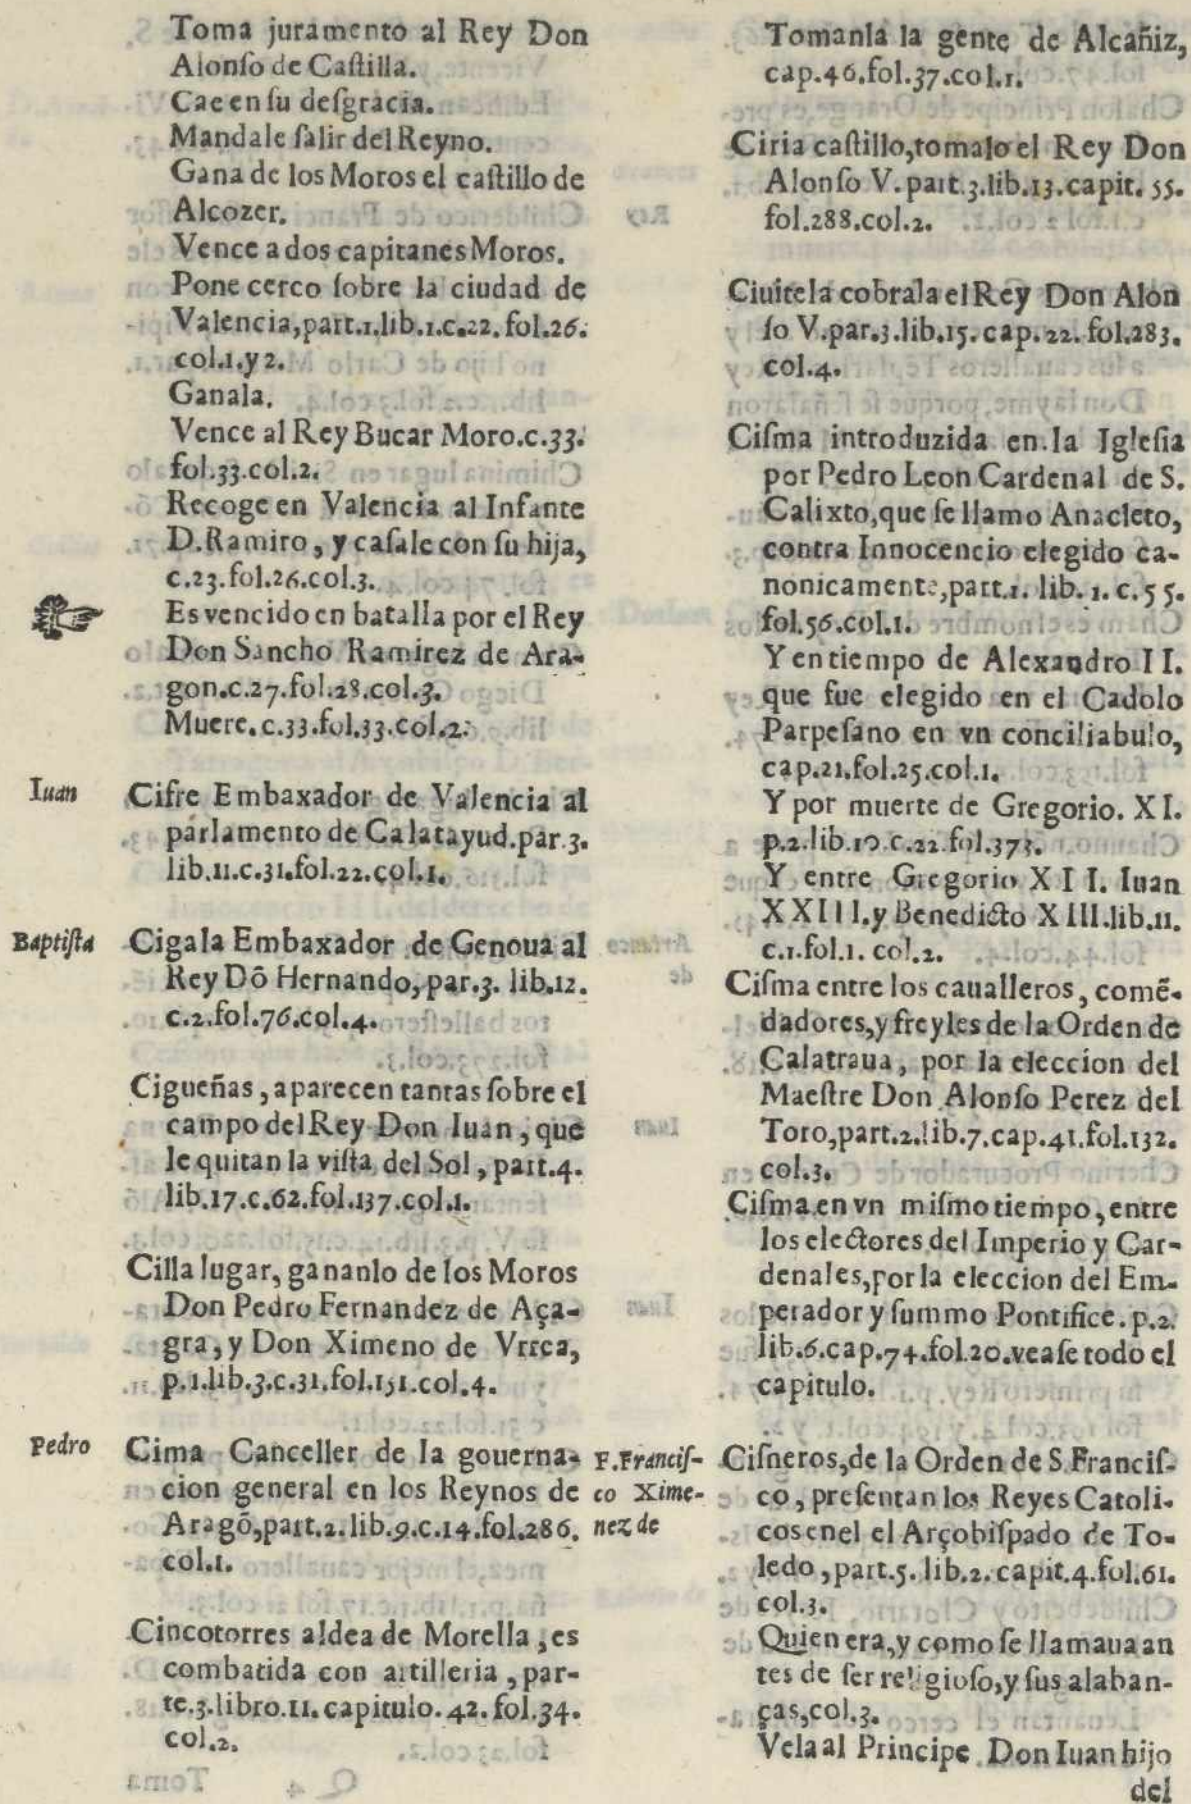 Toma juramento al Rey Don
Alonſo de Caſtilla.
Cae en ſu deſgracia.
Mandale ſalir del Reyno.
Gana de los Moros el caſtillo de
Alcozer.
Vence a dos capitanes Moros.
Pone cerco ſobre la ciudad de
Valencia,part.1.lib.1.c.22.fol.26.
col.1.y 2.
Ganala.
Vence al Rey Bucar Moro.c.33.
fol.33.col.2.
Recoge en Valencia al Infante
D.Ramiro, y caſale con ſu hija,
c.23.fol.26.col.3.
Es vencido en batalla por el Rey
Don Sancho Ramirez de Ara-
gon.c.27.fol.28.col.3.
Muere.c.33.fol.33.col.2.
Iuan Cifre Embaxador de Valencia al
parlamento de Calatayud.par.3.
lib.11.c.31.fol.22.col.1.
Baptiſta Cigala Embaxador de Genoua al
Rey Dõ Hernando,par.3. lib.12.
c.2.fol.76.col.4.
Cigueñas, aparecen tantas ſobre el
campo del Rey Don Iuan, que
le quitan la viſta del Sol, part.4.
lib.17.c.62.fol.137.col.1.
Cilla lugar, gananlo de los Moros
Don Pedro Fernandez de Aça-
gra, y Don Ximeno de Vrrea,
p.1.lib.3.c.31.fol.151.col.4.
Pedro Cima Canceller de la gouerna-
cion general en los Reynos de
Aragõ,part.2.lib.9.c.14.fol.286.
col.1.
Cincotorres aldea de Morella, es
combatida con artilleria, par-
te.3.libro.11.capitulo.42.fol.34.
col.2.
Tomanla la gente de Alcañiz,
cap.46.fol.37.col.1.
Ciria caſtillo,tomalo el Rey Don
Alonſo V.part.3.lib.13.capit.55.
fol.288.col.2.
Ciuitela cobrala el Rey Don Alon
ſo V.par.3.lib.15.cap.22.fol.283.
col.4.
Ciſma introduzida en la Igleſia
por Pedro Leon Cardenal de S.
Calixto,que ſe llamo Anacleto,
contra Innocencio elegido ca-
nonicamente,part.1. lib. 1. c.55.
fol.56.col.1.
Y en tiempo de Alexandro II.
que fue elegido en el Cadolo
Parpeſano en vn conciliabulo,
cap.21.fol.25.col.1.
Y por muerte de Gregorio. XI.
p.2.lib.10.c.22.fol.373.
Y entre Gregorio XII. Iuan
XXIII.y Benedicto XIII.lib.11.
c.1.fol.1. col.2.
Ciſma entre los caualleros, comẽ-
dadores,y freyles de la Orden de
Calatraua, por la eleccion del
Maeſtre Don Alonſo Perez del
Toro,part.2.lib.7.cap.41.fol.132.
col.3.
Ciſma en vn miſmo tiempo, entre
los electores del Imperio y Car-
denales,por la eleccion del Em-
perador y ſummo Pontifice. p.2.
lib.6.cap.74.fol.20.veaſe todo el
capitulo.
F.Franciſ- Ciſneros,de la Orden de S.Franciſ-
co Xime- co, preſentan los Reyes Catoli-
nez de cos enel el Arçobiſpado de To-
ledo, part.5. lib.2. capit.4.fol.61.
col.3.
Quien era,y como ſe llamaua an
tes de ſer religioſo,y ſus alaban-
ças,col.3.
Vela al Principe Don Iuan hijo
del